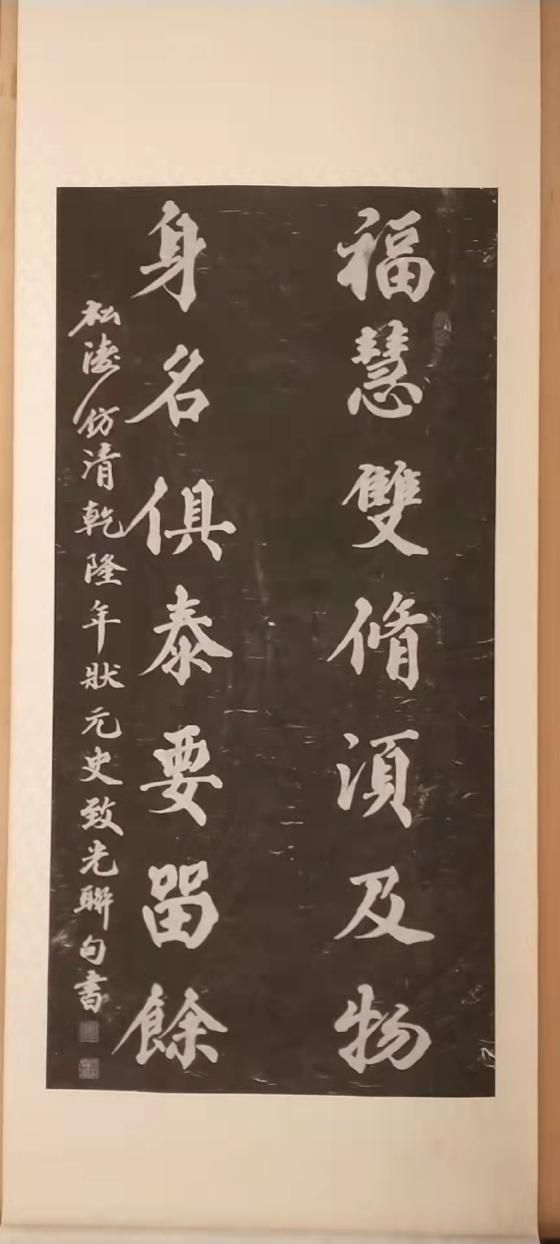 福慧雙脩須及物
身名俱泰要留餘
松濤仿清乾隆年狀元史致光聯句書